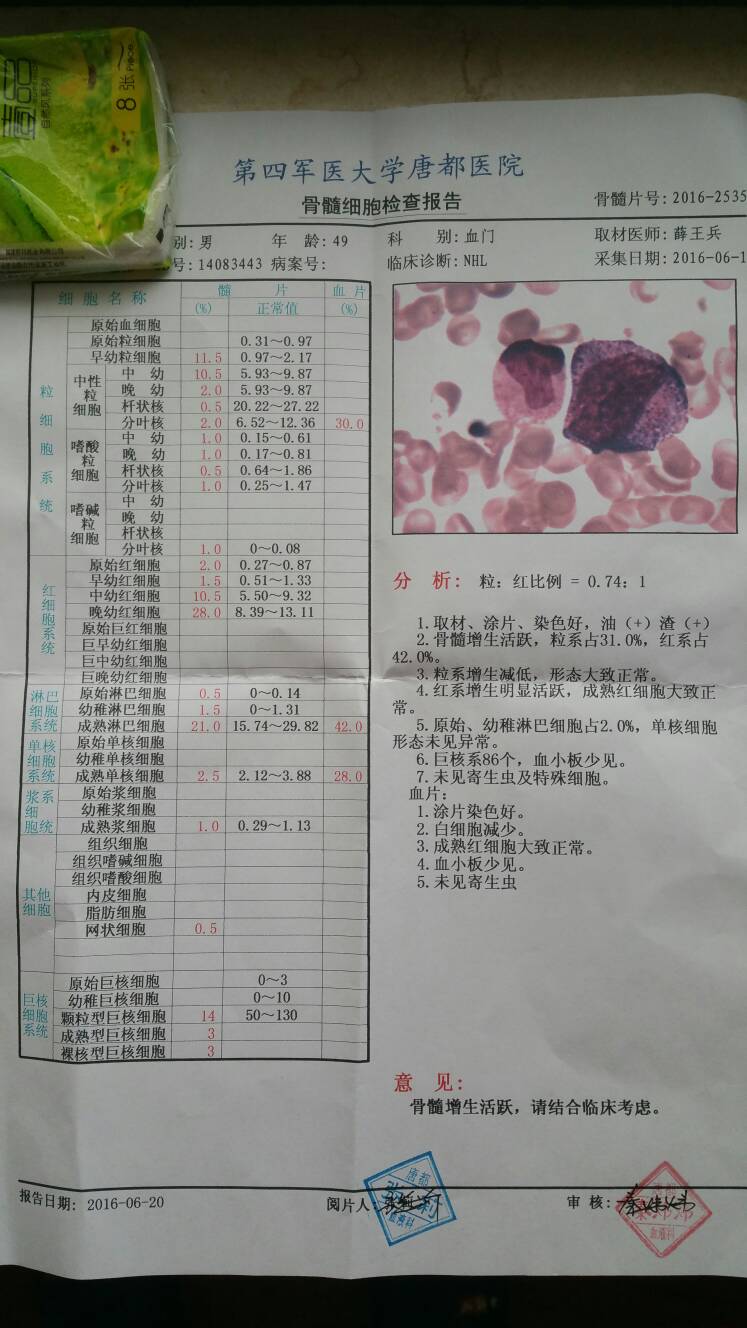 8张
Piece
第四军医大学唐都医院
骨髓细胞检查报告
骨髓片号: 2016-2535
别: 男 年 龄: 49 科 别: 血门 取材医师: 薛王兵
号: 14083443 病案号: 临床诊断: NHL 采集日期: 2016-06-1
细胞名称 髓 片 血片
(%) 正常值 (%)
粒细胞系统
原始血细胞
原始粒细胞 0.31～0.97
早幼粒细胞 11.5 0.97～2.17
中性粒细胞
中 幼 10.5 5.93～9.87
晚 幼 2.0 5.93～9.87
杆状核 0.5 20.22～27.22
分叶核 2.0 6.52～12.36 30.0
嗜酸粒细胞
中 幼 1.0 0.15～0.61
晚 幼 1.0 0.17～0.81
杆状核 0.5 0.64～1.86
分叶核 1.0 0.25～1.47
嗜碱粒细胞
中 幼
晚 幼
杆状核
分叶核 1.0 0～0.08
红细胞系统
原始红细胞 2.0 0.27～0.87
早幼红细胞 1.5 0.51～1.33
中幼红细胞 10.5 5.50～9.32
晚幼红细胞 28.0 8.39～13.11
原始巨红细胞
早巨幼红细胞
巨中幼红细胞
巨晚幼红细胞
淋巴细胞系统
原始淋巴细胞 0.5 0～0.14
幼稚淋巴细胞 1.5 0～1.31
成熟淋巴细胞 21.0 15.74～29.82 42.0
单核细胞系统
原始单核细胞
幼稚单核细胞
成熟单核细胞 2.5 2.12～3.88 28.0
浆系细胞统
原始浆细胞
幼稚浆细胞
成熟浆细胞 1.0 0.29～1.13
其他细胞
组织细胞
组织嗜碱细胞
组织嗜酸细胞
内皮细胞
脂肪细胞
网状细胞 0.5
巨核细胞系统
原始巨核细胞 0～3
幼稚巨核细胞 0～10
颗粒型巨核细胞 14 50～130
成熟型巨核细胞 3
裸核型巨核细胞 3
分 析: 粒: 红比例 = 0.74: 1
1.取材、涂片、染色好，油（+）渣（+）
2.骨髓增生活跃，粒系占31.0%，红系占
42.0%。
3.粒系增生减低，形态大致正常。
4.红系增生明显活跃，成熟红细胞大致正
常。
5.原始、幼稚淋巴细胞占2.0%，单核细胞
形态未见异常。
6.巨核系86个，血小板少见。
7.未见寄生虫及特殊细胞。
血片:
1.涂片染色好。
2.白细胞减少。
3.成熟红细胞大致正常。
4.血小板少见。
5.未见寄生虫
意 见:
骨髓增生活跃，请结合临床考虑。
报告日期: 2016-06-20 阅片人: 审 核:
唐都
血液科